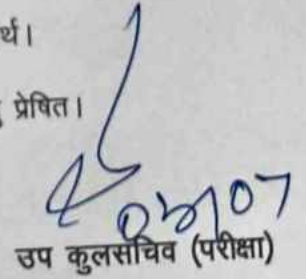 र्थ।
प्रेषित।
उप कुलसचिव (परीक्षा)